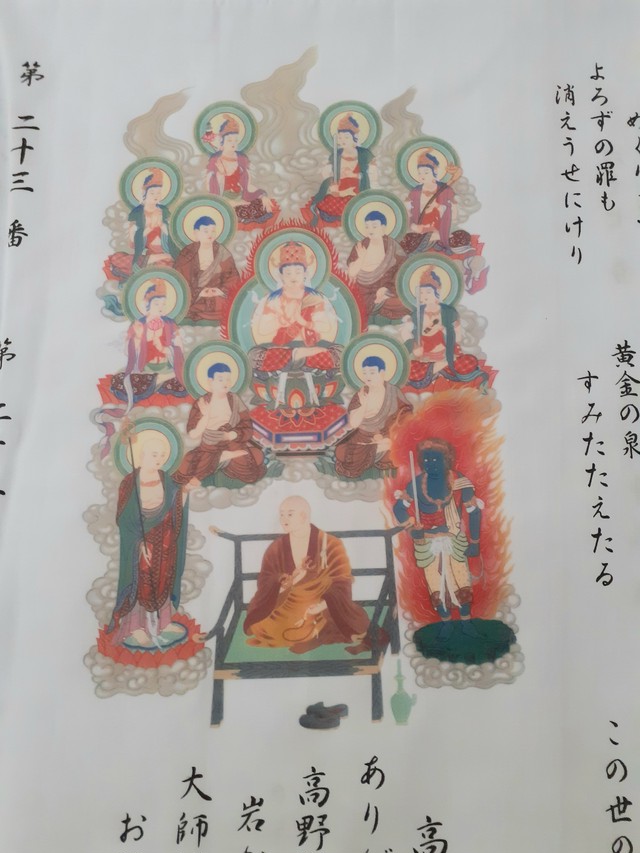 よろずの罪も
消えうせにけり
黄金の泉
すみたたえたる
この世の
高
あり
高野
岩
大師
お
第二十三番
第二